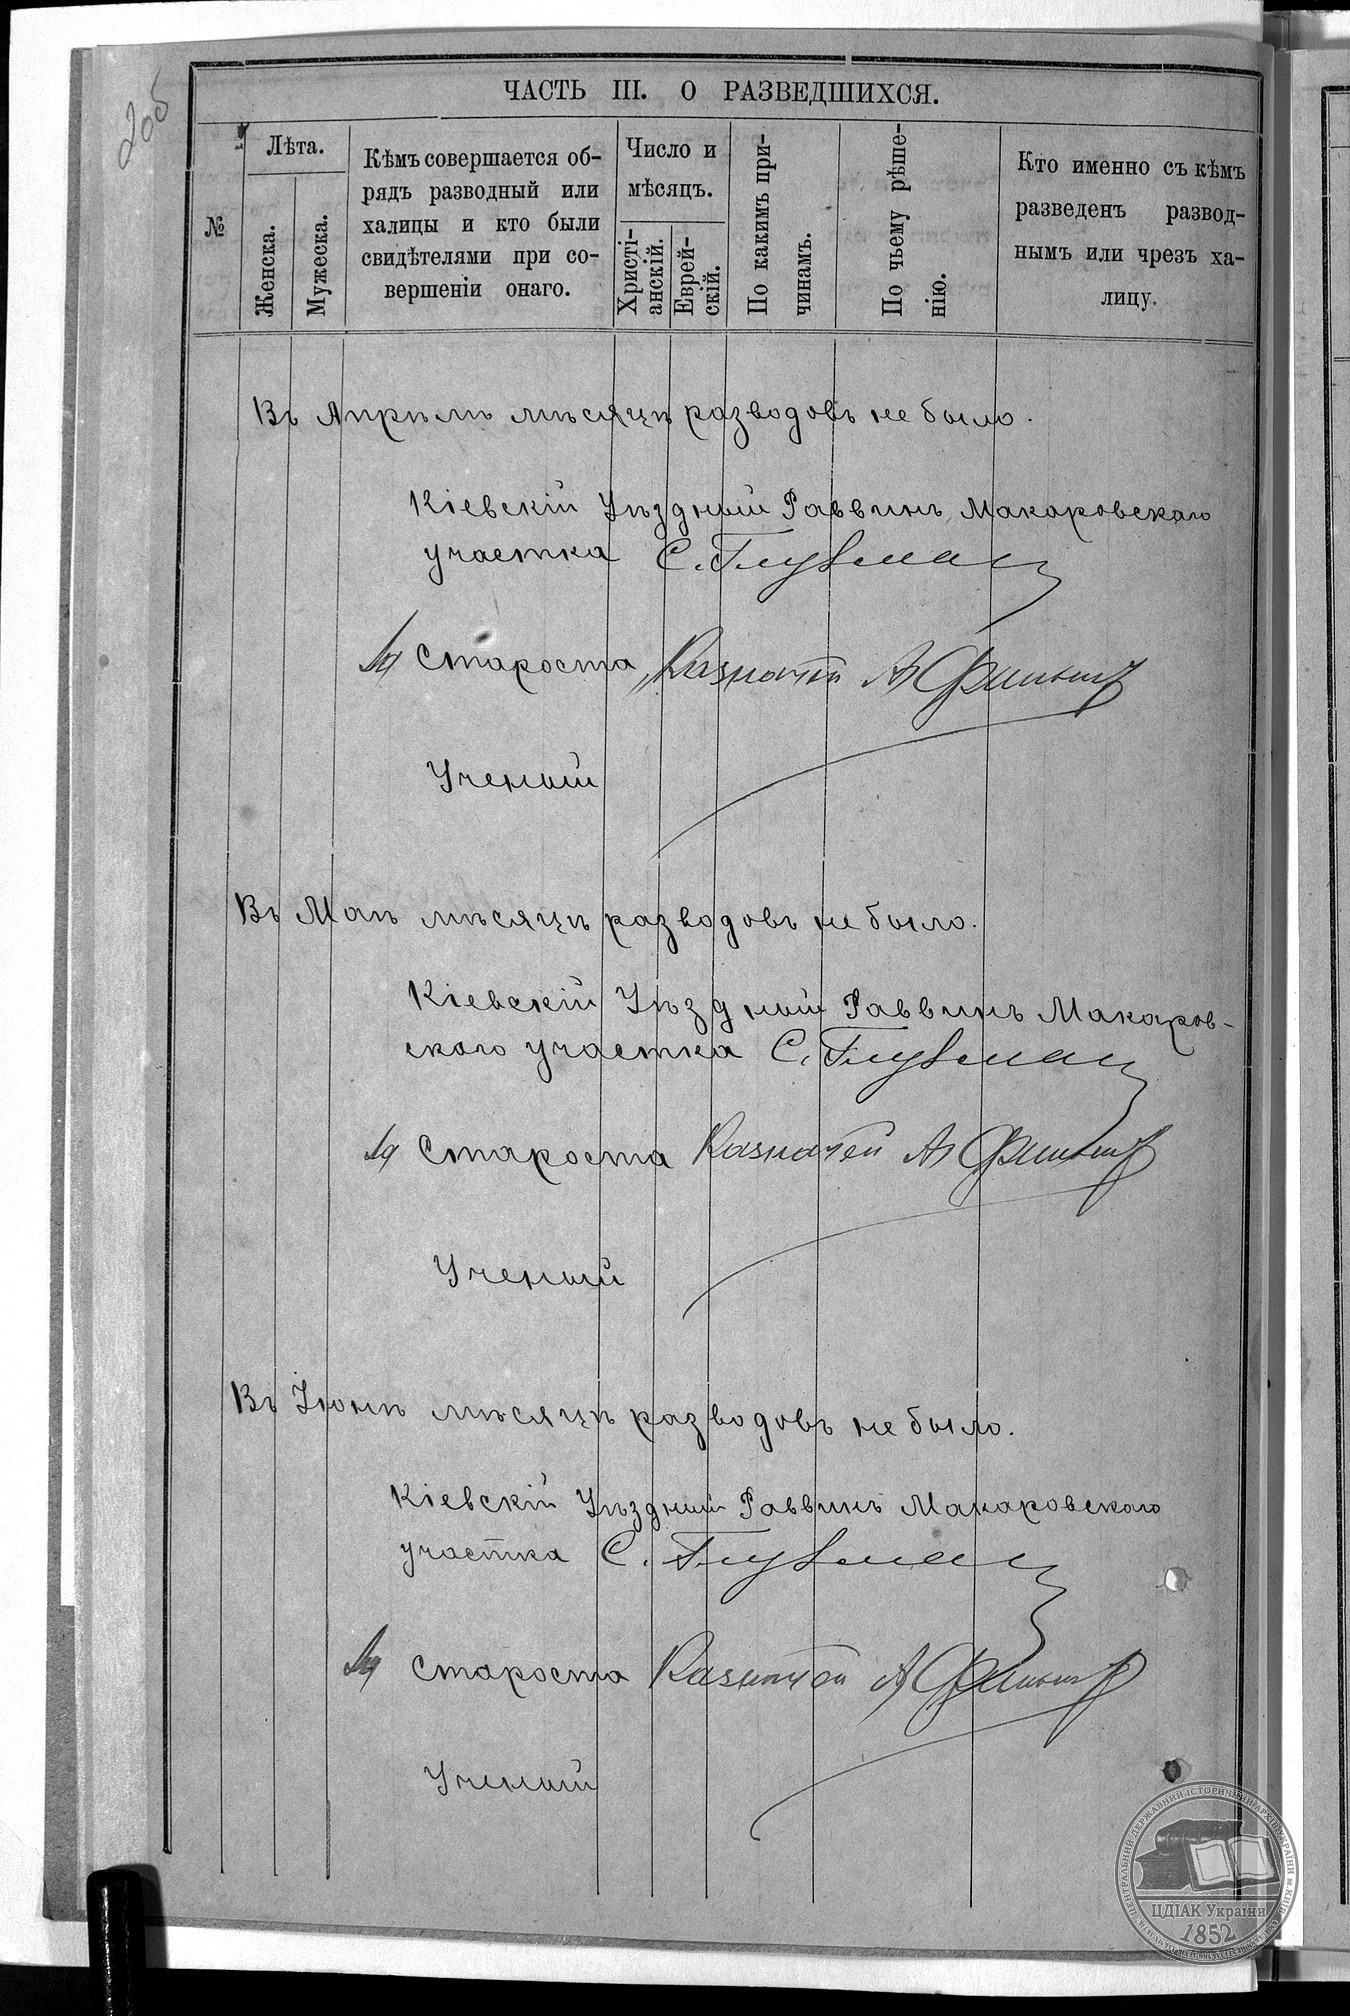 ЧАСТЬ III. О РАЗВЕДШИХСЯ.
№
Лѣта.
Женска.
Мужеска.
Кѣмъ совершается об-
рядъ разводный или
халицы и кто были
свидѣтелями при со-
вершеніи онаго.
Число и
мѣсяцъ.
Христі-
анскій.
Еврей-
скій.
По какимъ при-
чинамъ.
По чьему рѣше-
нію.
Кто именно съ кѣмъ
разведенъ развод-
нымъ или чрезъ ха-
лицу.
Въ Апрѣлѣ мѣсяцѣ разводовъ не было.
Кіевскій Уѣздный Раввинъ Макаровскаго
участка С. Глузман
За Староста Казначей А
Ученый
Въ Маѣ мѣсяцѣ разводовъ не было.
Кіевскій Уѣздный Раввинъ Макаров-
скаго участка С. Глузман
За Староста Казначей А
Ученый
Въ Іюнѣ мѣсяцѣ разводовъ не было.
Кіевскій Уѣздный Раввинъ Макаровскаго
участка С. Глузман
За Староста Казначей А
Ученый
ЦЕНТРАЛЬНИЙ ДЕРЖАВНИЙ ІСТОРИЧНИЙ АРХІВ УКРАЇНИ м. КИЇВ
ЦДІАК України
1852